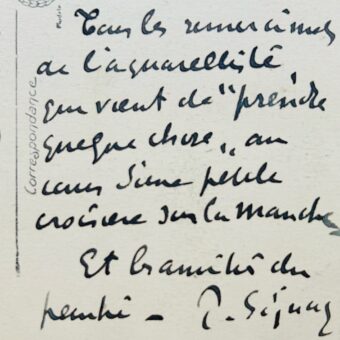 Tous les remerciments
de l'aquarelliste
qui vient de "prendre
quelque chose" au
cours d'une petite
croisière sur la Manche
Et l'amitié du
peintre — P. Signac
Correspondance